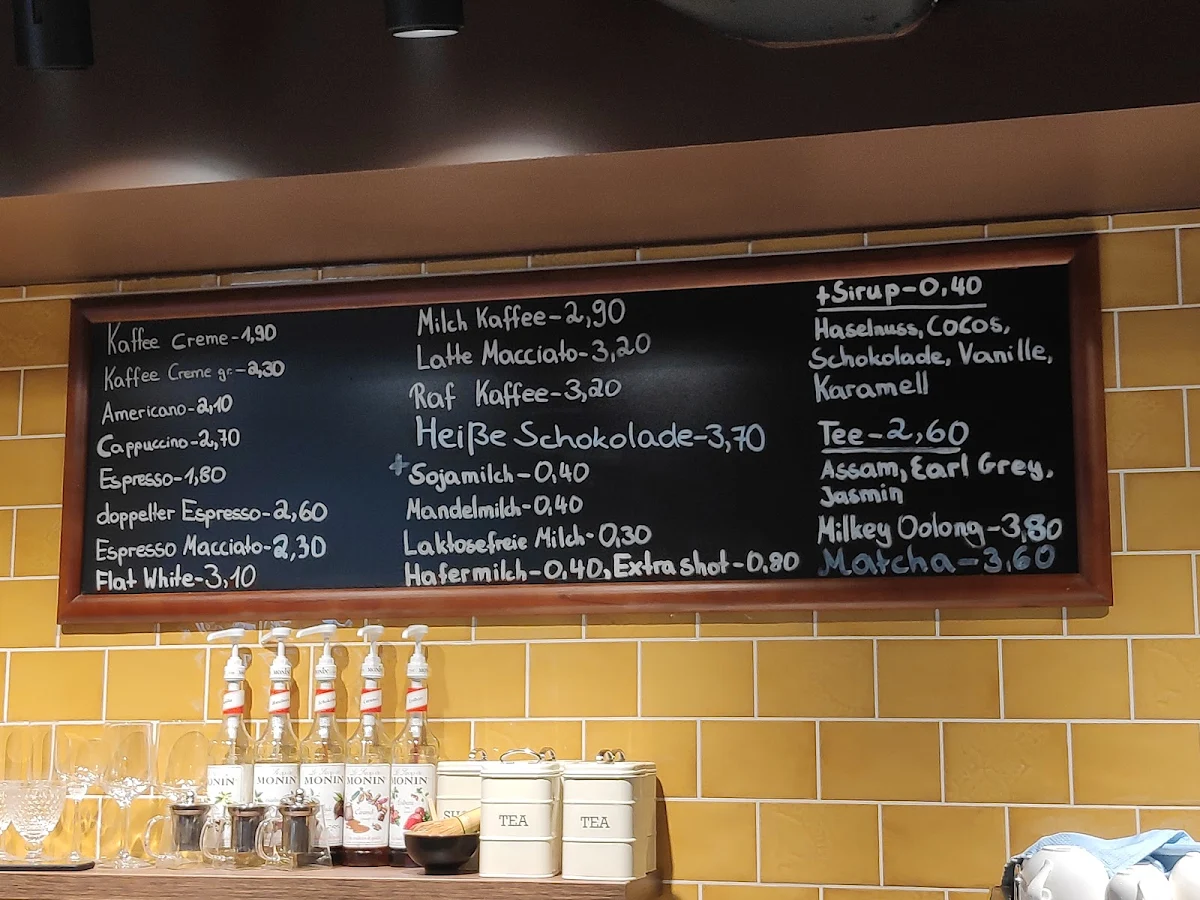 Kaffee Creme-1,90
Kaffee Creme gr.-2,30
Americano-2,10
Cappuccino-2,70
Espresso-1,80
doppelter Espresso-2,60
Espresso Macciato-2,30
Flat White-3,10
Milch Kaffee-2,90
Latte Macciato-3,20
Raf Kaffee-3,20
Heiße Schokolade-3,70
+Sojamilch-0,40
Mandelmilch-0,40
Laktosefreie Milch-0,30
Hafermilch-0,40, Extra shot-0,80
+Sirup-0,40
Haselnuss, Cocos,
Schokolade, Vanille,
Karamell
Tee-2,60
Assam, Earl Grey,
Jasmin
Milkey Oolong-3,80
Matcha-3,60
MONIN
MONIN
MONIN
MONIN
TEA
TEA